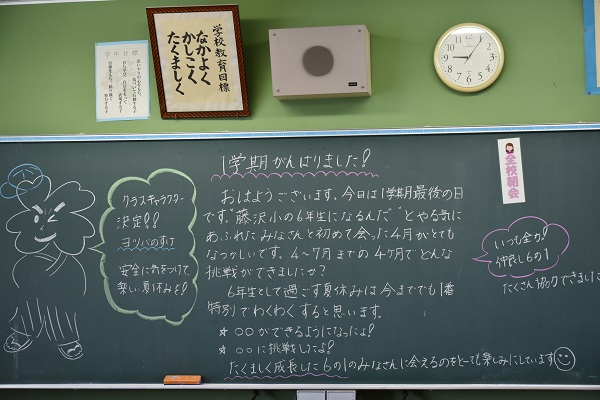 学年目標
学校教育目標
なかよく
かしこく
たくましく
全校朝会
1学期がんばりました!
おはようございます。今日は1学期最後の日
です。"藤沢小の6年生になるんだ"とやる気に
あふれたみなさんと初めて会った4月がとても
なつかしいです。4〜7月までの4ヶ月でどんな
挑戦ができましたか?
6年生として過ごす夏休みは今まででも1番
特別でわくわくすると思います。
★ ○○ができるようになったよ!
★ ○○に挑戦したよ!
たくましく成長した6の1のみなさんに会えるのをとーても楽しみにしています
クラスキャラクター
決定!!
ヨツバのすけ
安全に気をつけて
楽しい夏休みを!
いつも全力!
仲良し6の1
たくさん協力できました